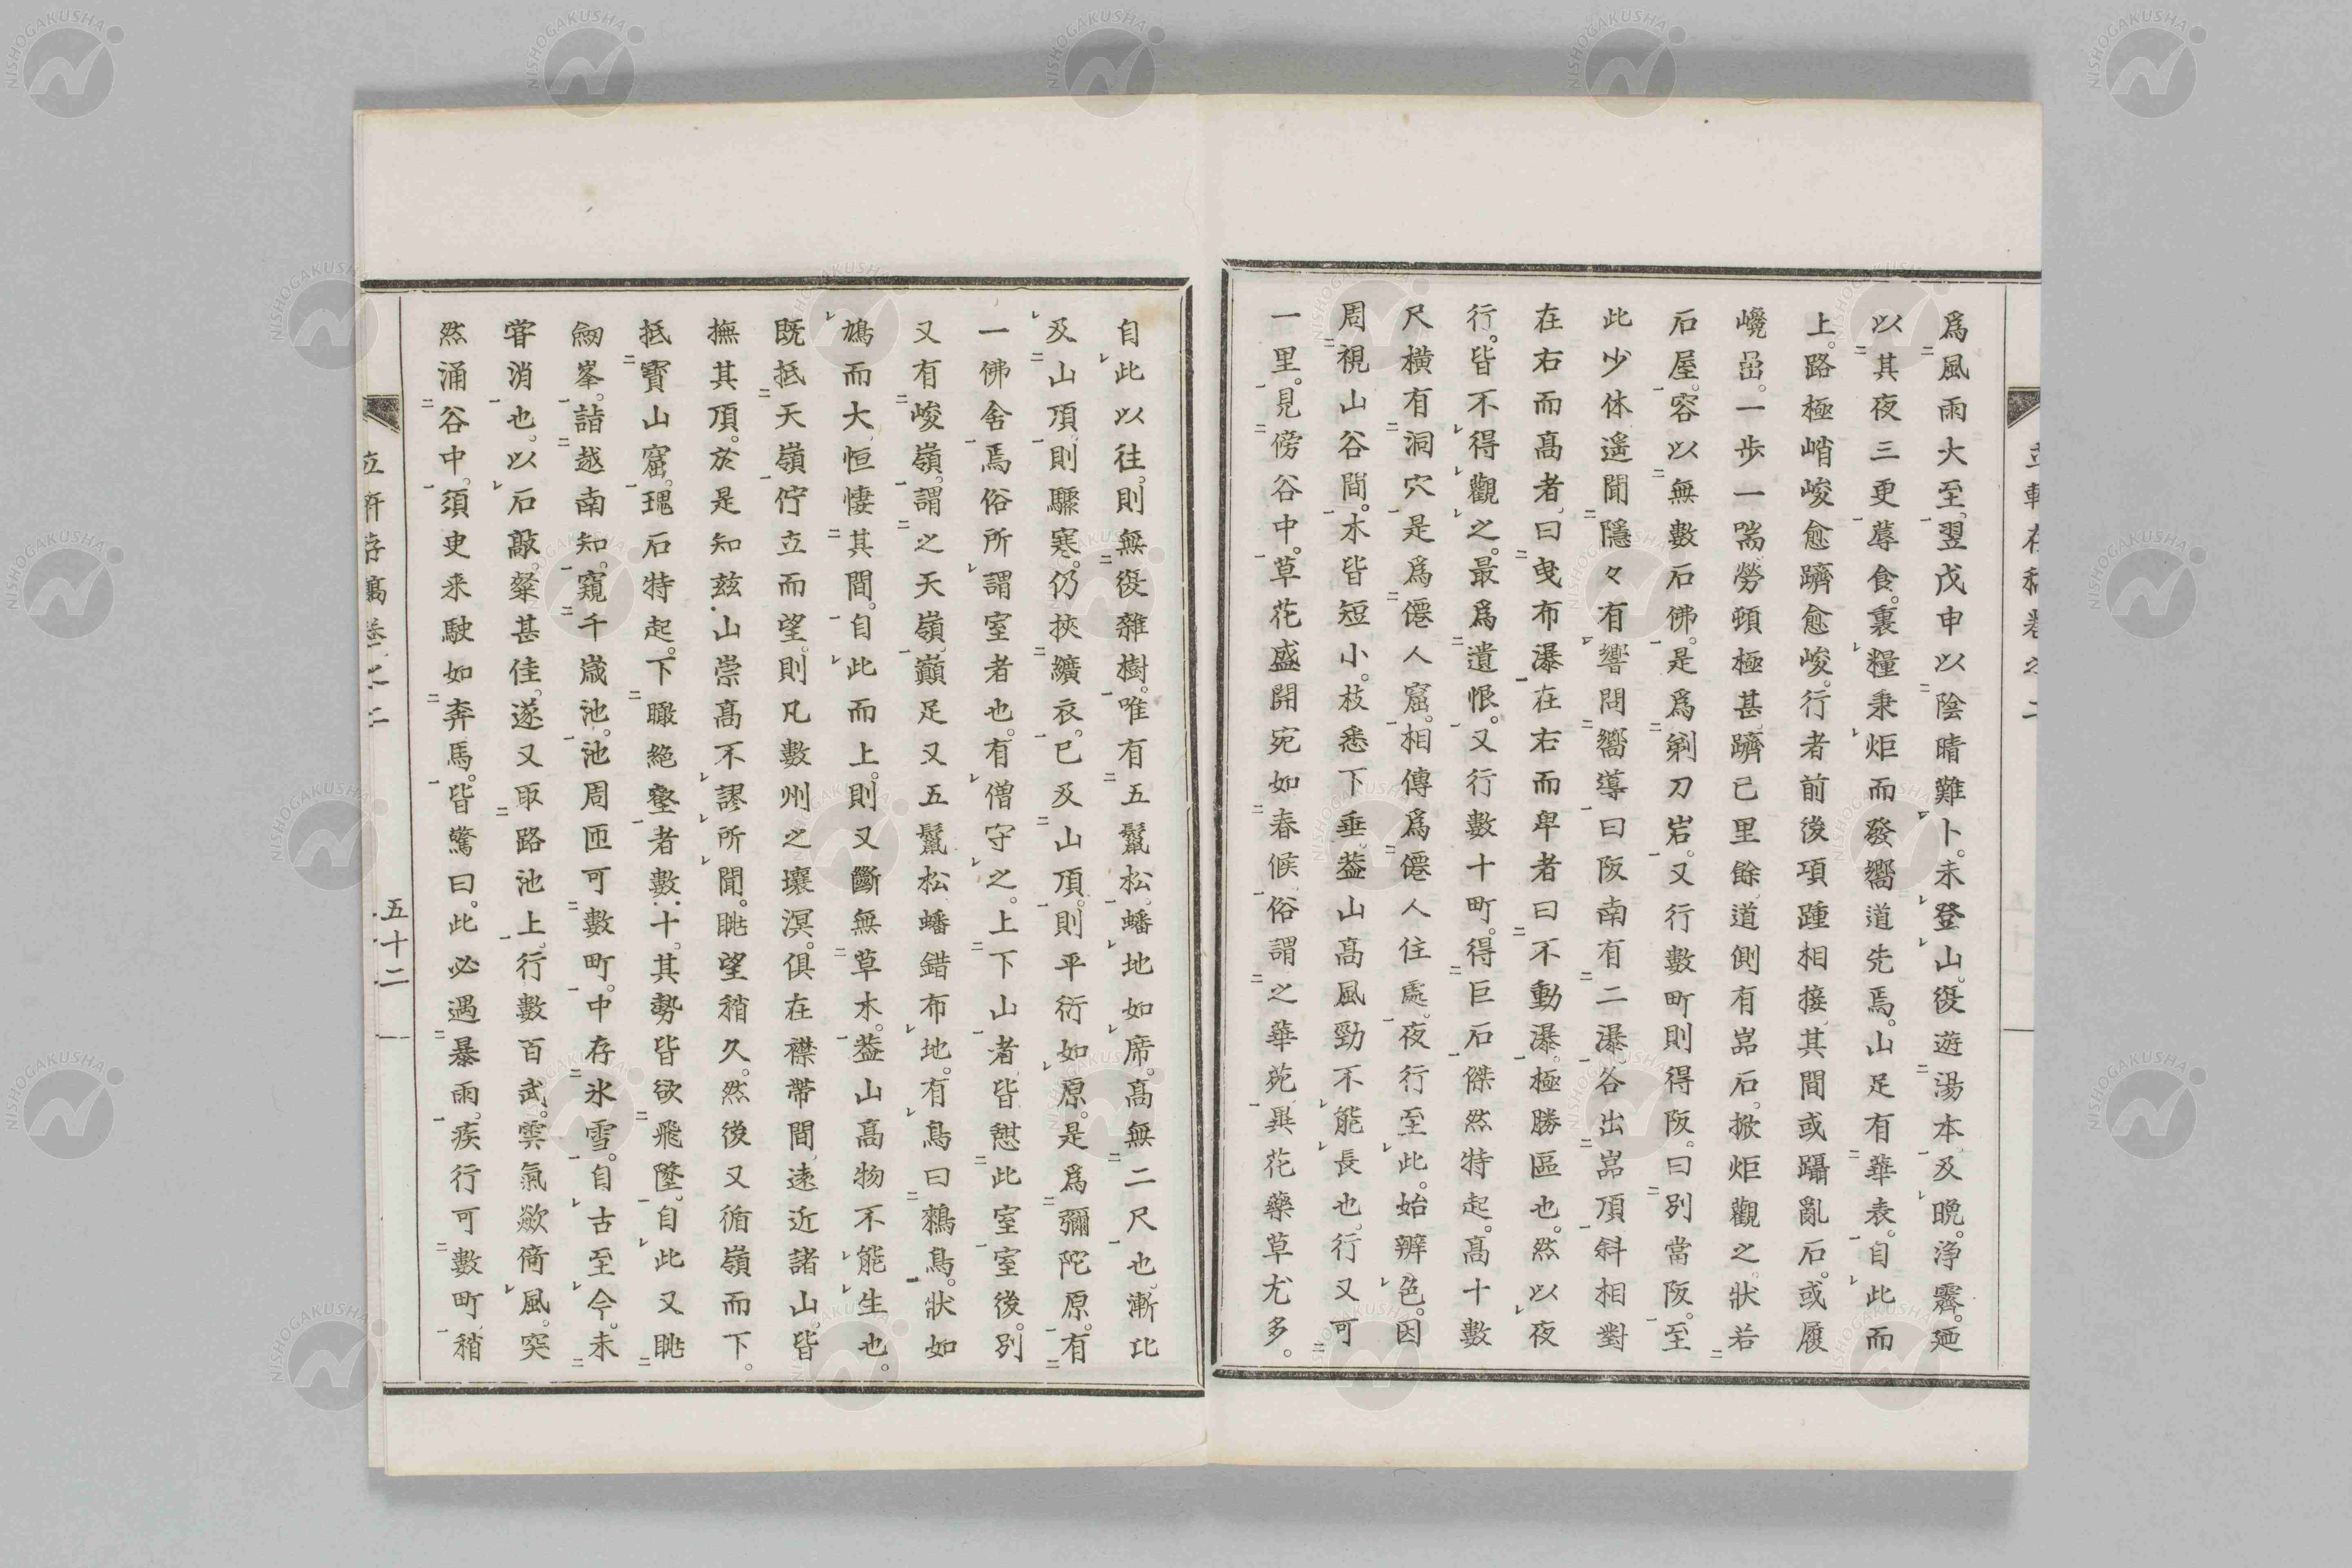 爲風雨大至。翌戊申以陰晴難卜。未登山。復遊湯本。及晩。淨霽。廼
以其夜三更蓐食。裏糧秉炬而發。嚮道先焉。山足有華表。自此而
上。路極峭峻愈躋愈峻。行者前後項踵相接、其間或躡亂石。或履
巉嵒。一步一喘勞頓極甚、躋已里餘、道側有嵓石。掀炬觀之、狀若
石屋。容以無數石佛。是爲剃刀岩。又行數町則得阪。曰別當阪。至
此少休遥聞隱々有響問嚮導曰阪南有二瀑。各出嵓頂。斜相對
在右而高者、曰曳布瀑。在右而卑者曰不動瀑。極勝區也。然以夜
行。皆不得觀之。最爲遺恨。又行數十町。得巨石傑然特起。高十數
尺橫有洞穴。是爲僊人窟。相傳爲僊人住處。夜行至此。始辨色。因
周視山谷間。木皆短小。枝悉下垂。蓋山高風勁不能長也、行又可
一里。見傍谷中。草花盛開宛如春候、俗謂之華苑、異花藥草尤多。
自此以往。則無復雜樹。唯有五鬣松、蟠地如席。高無二尺也、漸比
及山頂、則驟寒。仍挾纊衣。已及山頂。則平衍如原。是爲彌陀原。有
一佛舍焉俗所謂室者也。有僧守之。上下山者、皆憇此室、室後。別
又有峻嶺。謂之天嶺、巓足又五鬣松蟠錯布地。有鳥曰鶇鳥。狀如
鳩而大、恒悽其間。自此而上。則又斷無草木。蓋山高物不能生也。
既抵天嶺、佇立而望。則凡數州之壤溟。俱在襟帶間、遠近諸山。皆
撫其頂。於是知茲山崇高不謬所聞。眺望稍久。然後又循嶺而下。
抵寶山窟。瑰石特起。下瞰絕壑者數十。其勢皆欲飛墮。自此又眺
劒峯。詣越南知。窺千歲池。池周匝可數町。中存氷雪。自古至今。未
甞消也、以石敲粲甚佳、遂又取路池上。行數百武。雲氣歘倚風。突
然涌谷中。須臾来駛如奔馬。皆驚曰。此必遇暴雨、疾行可數町、稍
五十二